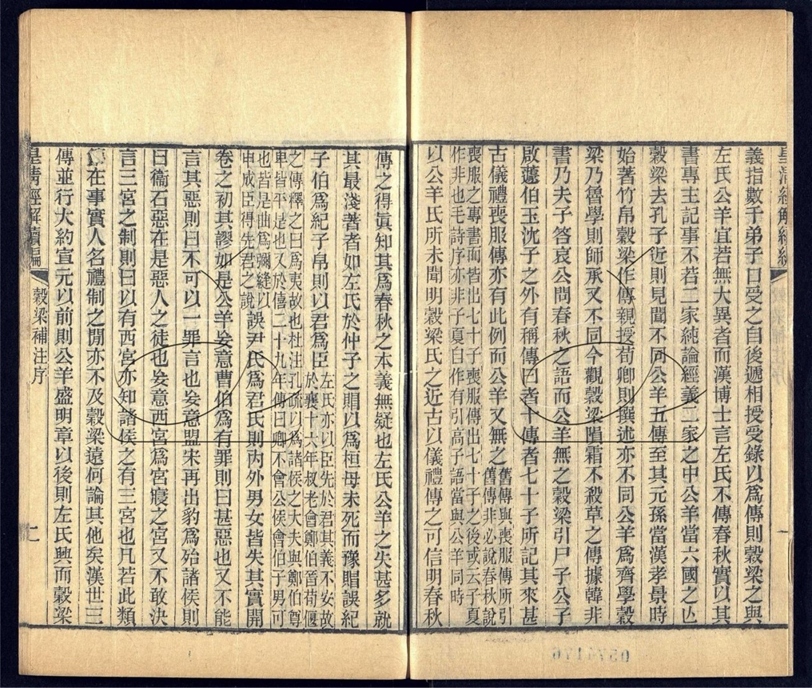 皇清經解續編
義指數于弟子口受之自後遞相授受錄以爲傳則穀梁之與
左氏公羊宜若無大異者而漢博士言左氏不傳春秋實以其
書專主記事不若二家純論經義二家之中公羊當六國之亾
穀梁去孔子近則見聞不同公羊五傳至其元孫當漢孝景時
始著竹帛穀梁作傳親授荀卿則撰述亦不同公羊爲齊學穀
梁乃魯學則師承又不同今觀穀梁隕霜不殺草之傳據韓非
書乃夫子答哀公問春秋之語而公羊無之穀梁引尸子公子
啟蘧伯玉沈子之外有稱傳曰者十傳者七十子所記其來甚
古儀禮喪服傳亦有此例而公羊又無之舊傳與喪服傳所引
舊傳非必說春秋說
喪服之專書而皆出七十子喪服傳出七十子之後或云子夏
作非也毛詩序亦非子夏自作有引高子語當與公羊同時
以公羊氏所未聞明穀梁氏之近古以儀禮傳之可信明春秋
傳之得眞知其爲春秋之本義無疑也左氏公羊之失甚多就
其最淺著者如左氏於仲子之賵以爲桓母未死而豫賵誤紀
子伯爲紀子帛則以君爲臣左氏亦以臣先於君其義不安故
於襄十六年叔老會鄭伯晉荀偃
之傳釋之曰爲夷故也杜注孔疏以爲諸侯之大夫與鄭伯尊
卑皆平是也又於僖二十九年傳曰卿不會公侯會伯子男可
也皆是曲爲彌縫以
申成臣得先君之說
誤尹氏爲君氏則內外男女皆失其實開
卷之初其謬如是公羊妄意曹伯爲有罪則曰甚惡也又不能
言其惡則曰不可以一罪言也妄意盟宋再出豹爲殆諸侯則
曰衞石惡在是惡人之徒也妄意西宮爲宮寢之宮又不敢決
言三宮之制則曰以有西宮亦知諸侯之有三宮也凡若此類
在事實人名禮制之閒亦不及穀梁遠何論其他矣漢世三
傳並行大約宣元以前則公羊盛明章以後則左氏興而穀梁
皇清經解續編
穀梁補注序
0574176